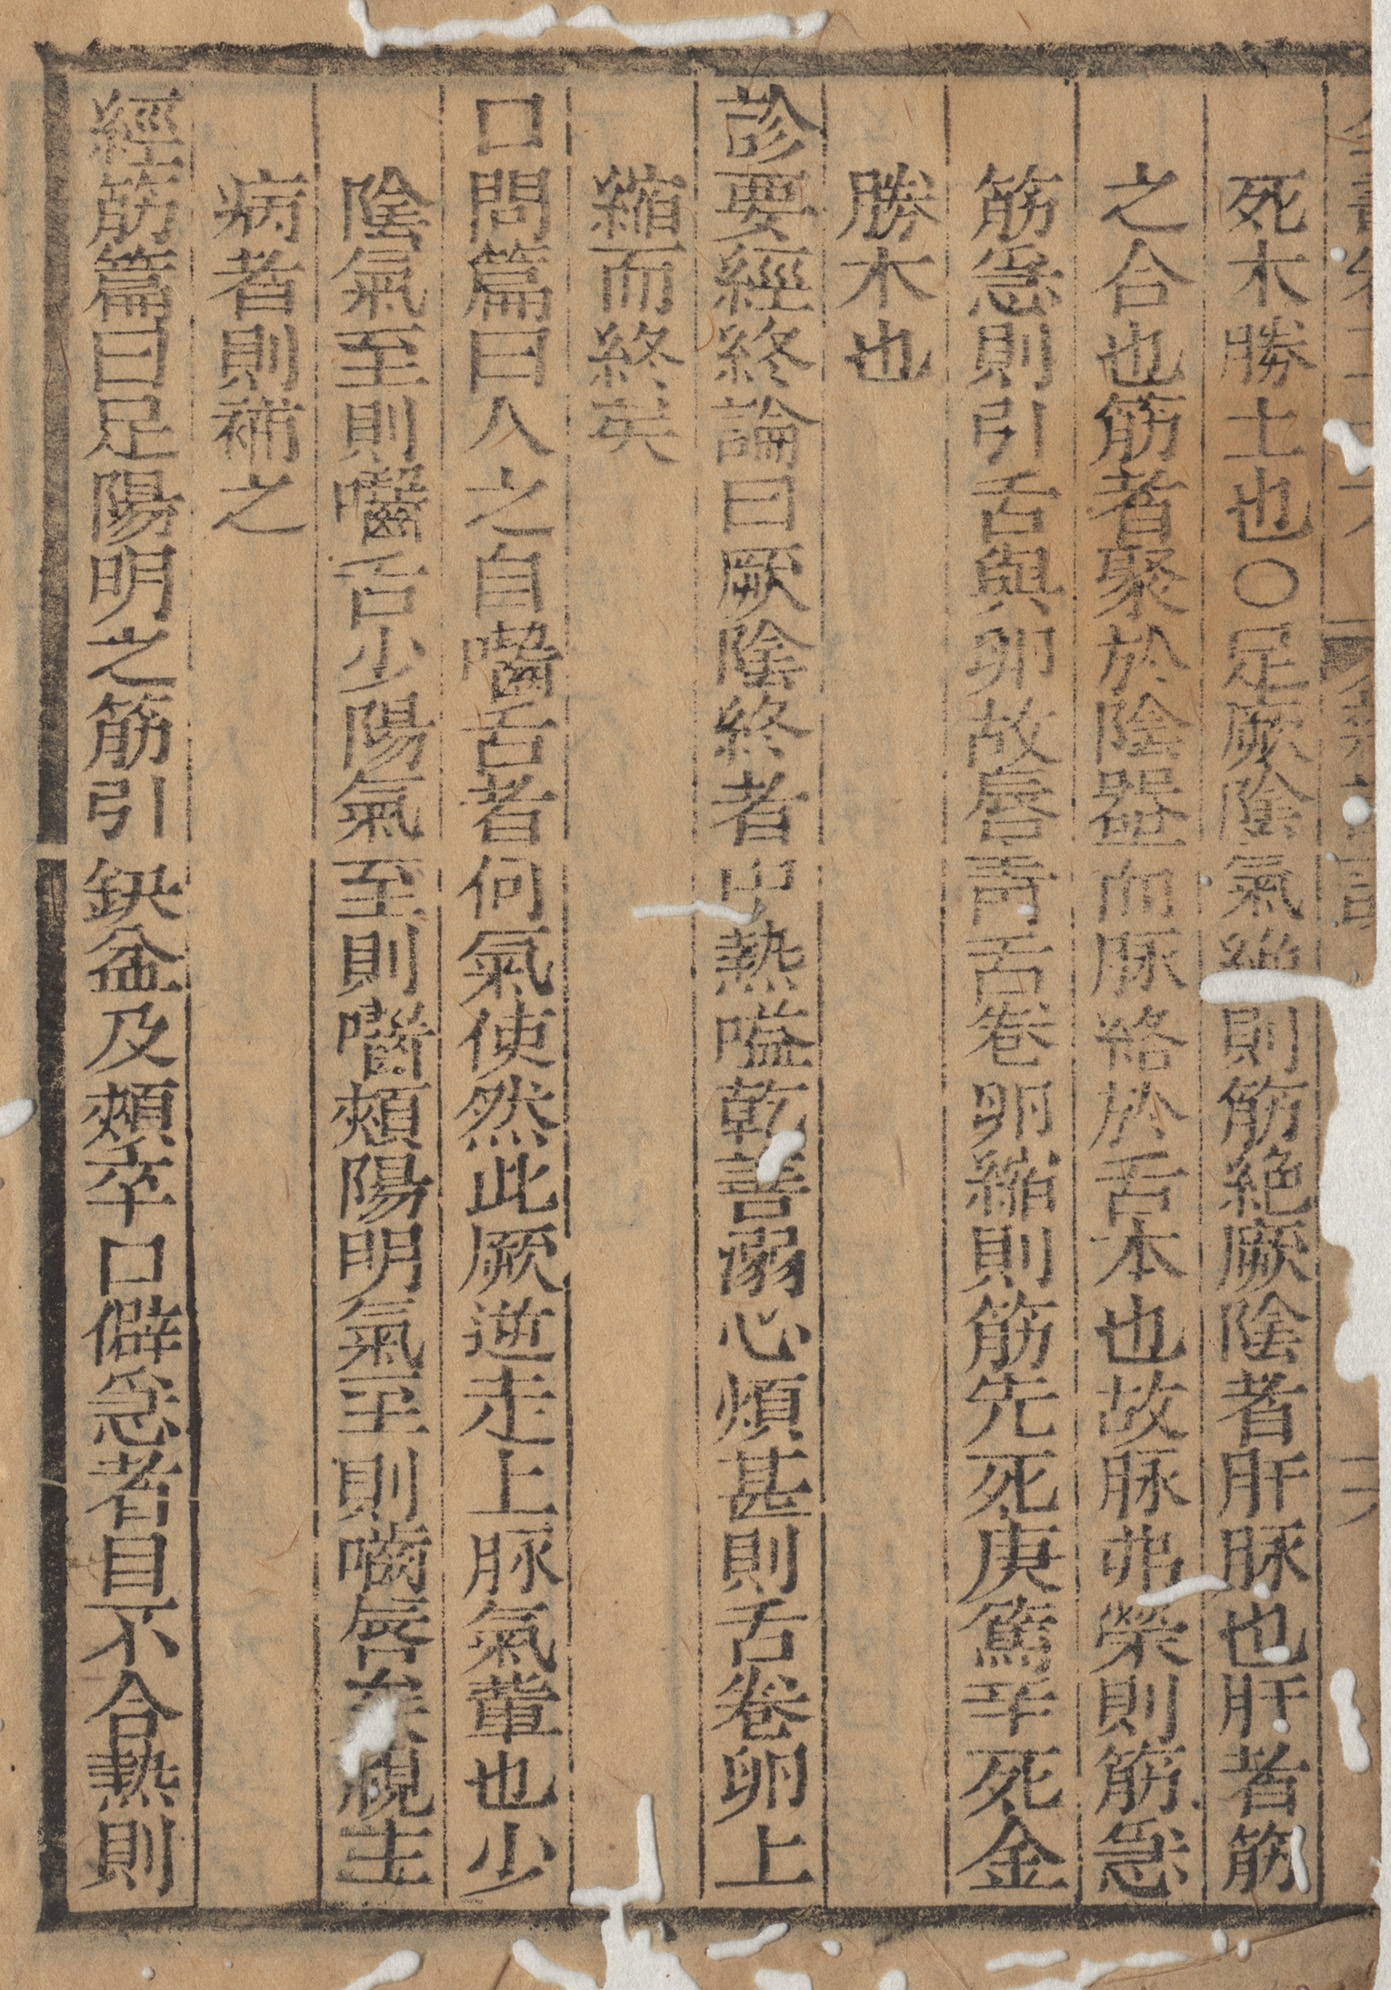 死木勝土也○足厥陰氣絶則筋絶厥陰者肝脉也肝者筋
之合也筋者聚於陰器而脉絡於舌本也故脉弗榮則筋急
筋急則引舌與卵故唇靑舌卷卵縮則筋先死庚篤辛死金
勝木也
診要經終論曰厥陰終者中熱嗌乾善溺心煩甚則舌卷卵上
縮而終矣
口問篇曰人之自嚙舌者何氣使然此厥逆走上脉氣軰也少
陰氣至則嚙舌少陽氣至則嚙頰陽明氣至則嚙唇矣視主
病者則補之
經筋篇曰足陽明之筋引缺盆及頰卒口僻急者目不合熱則